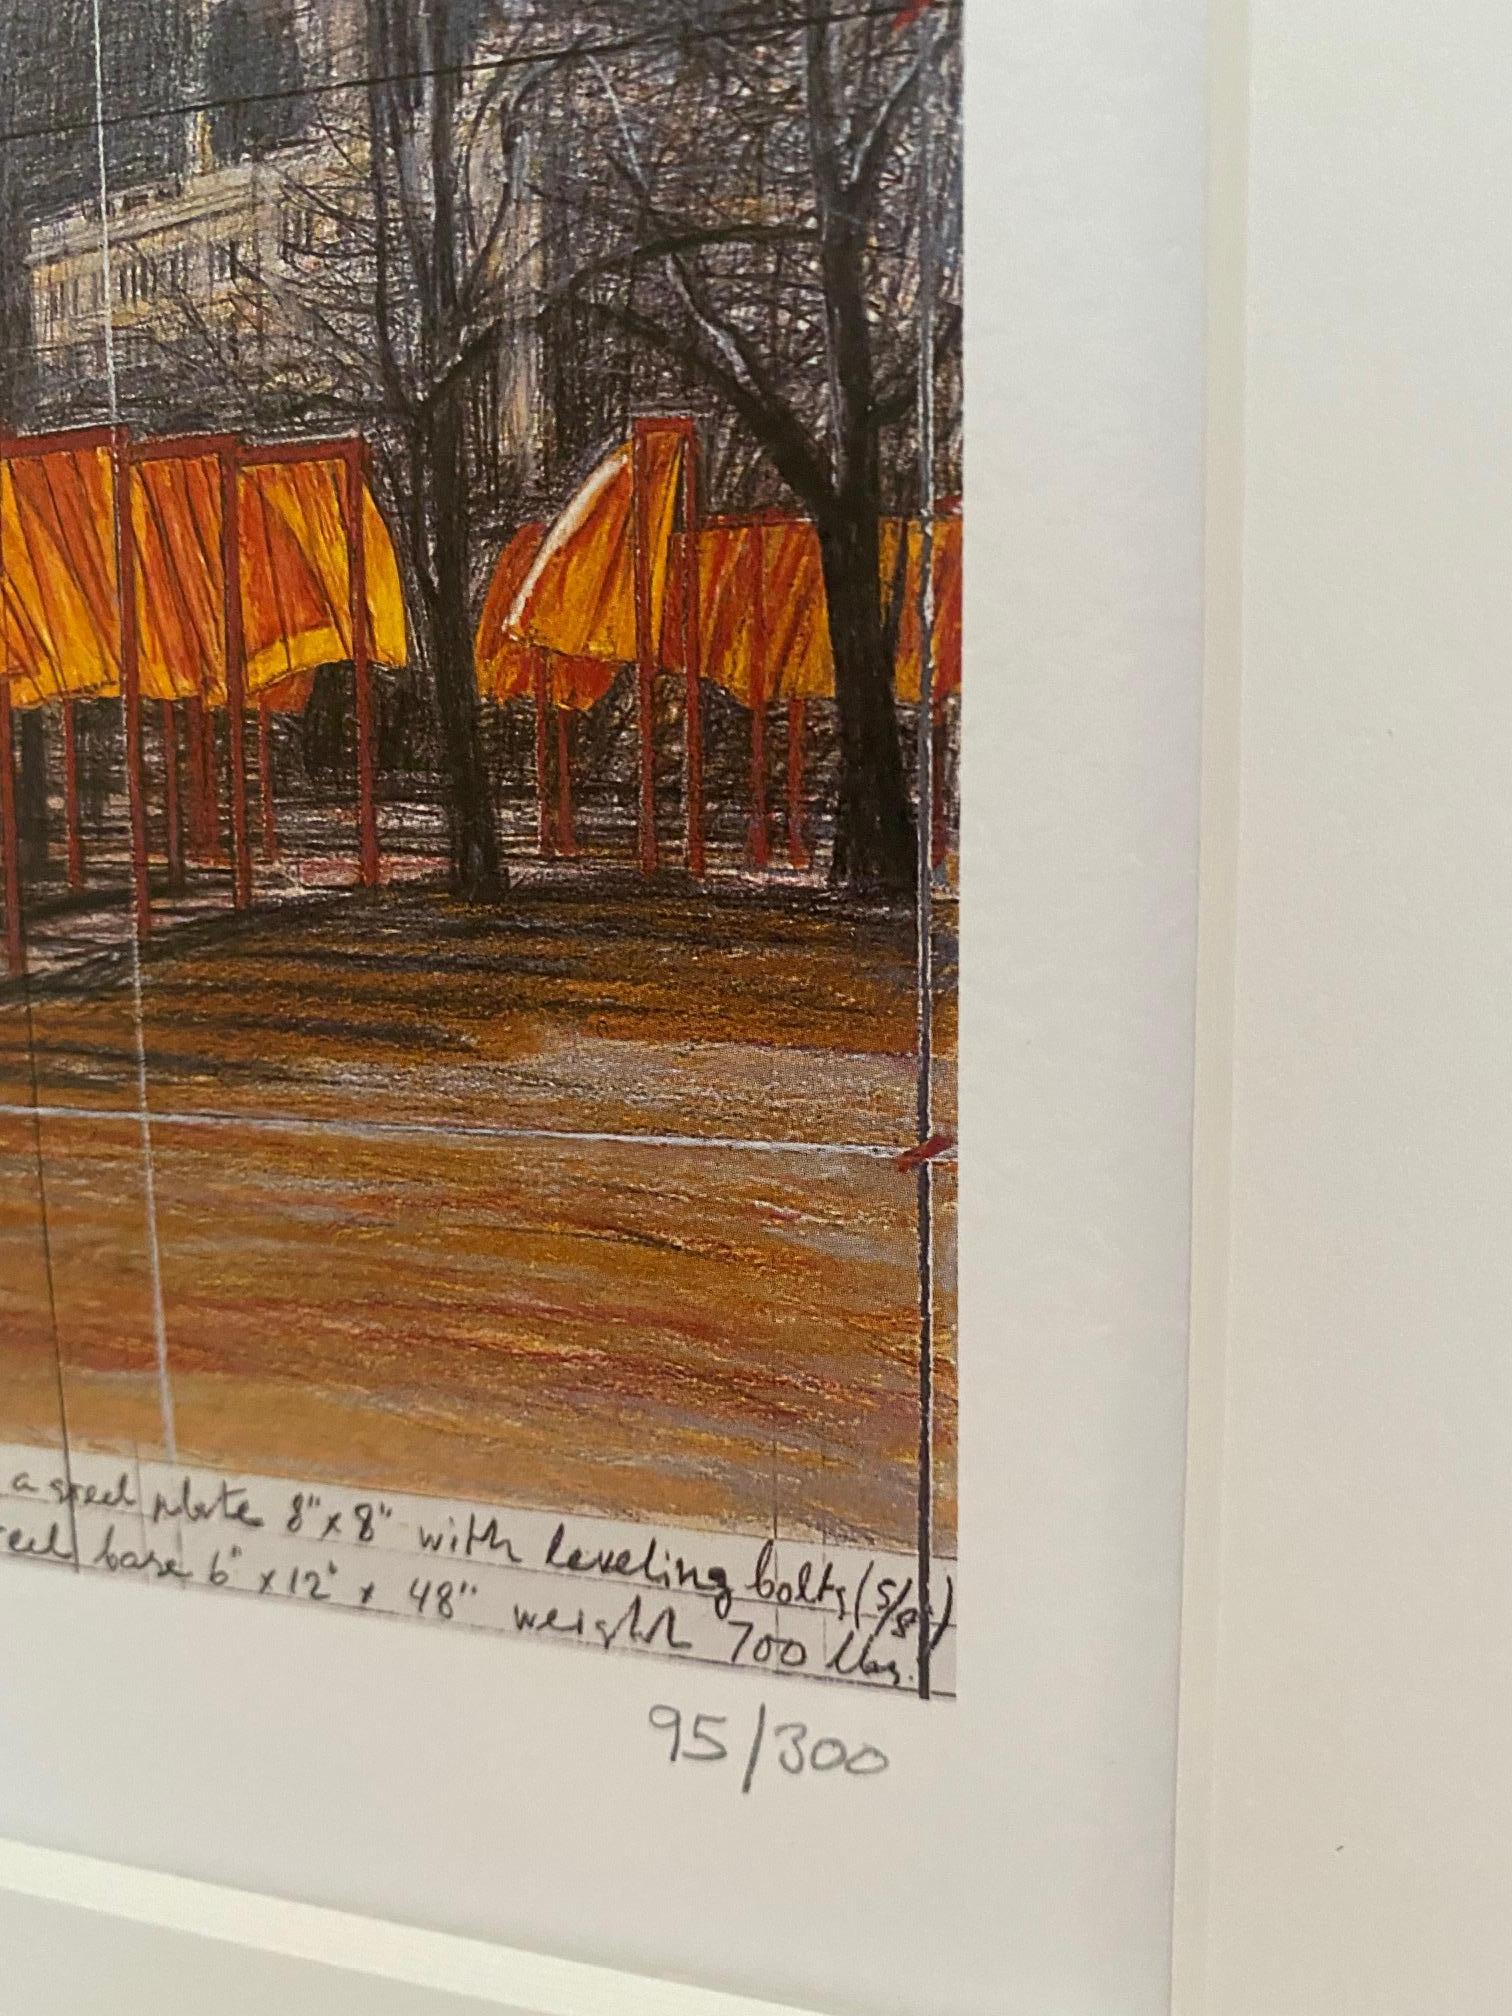 a steel plate 8" x 8" with leveling bolts (5/8")
steel base 6" x 12" x 48" weight 700 lbs.
95/300